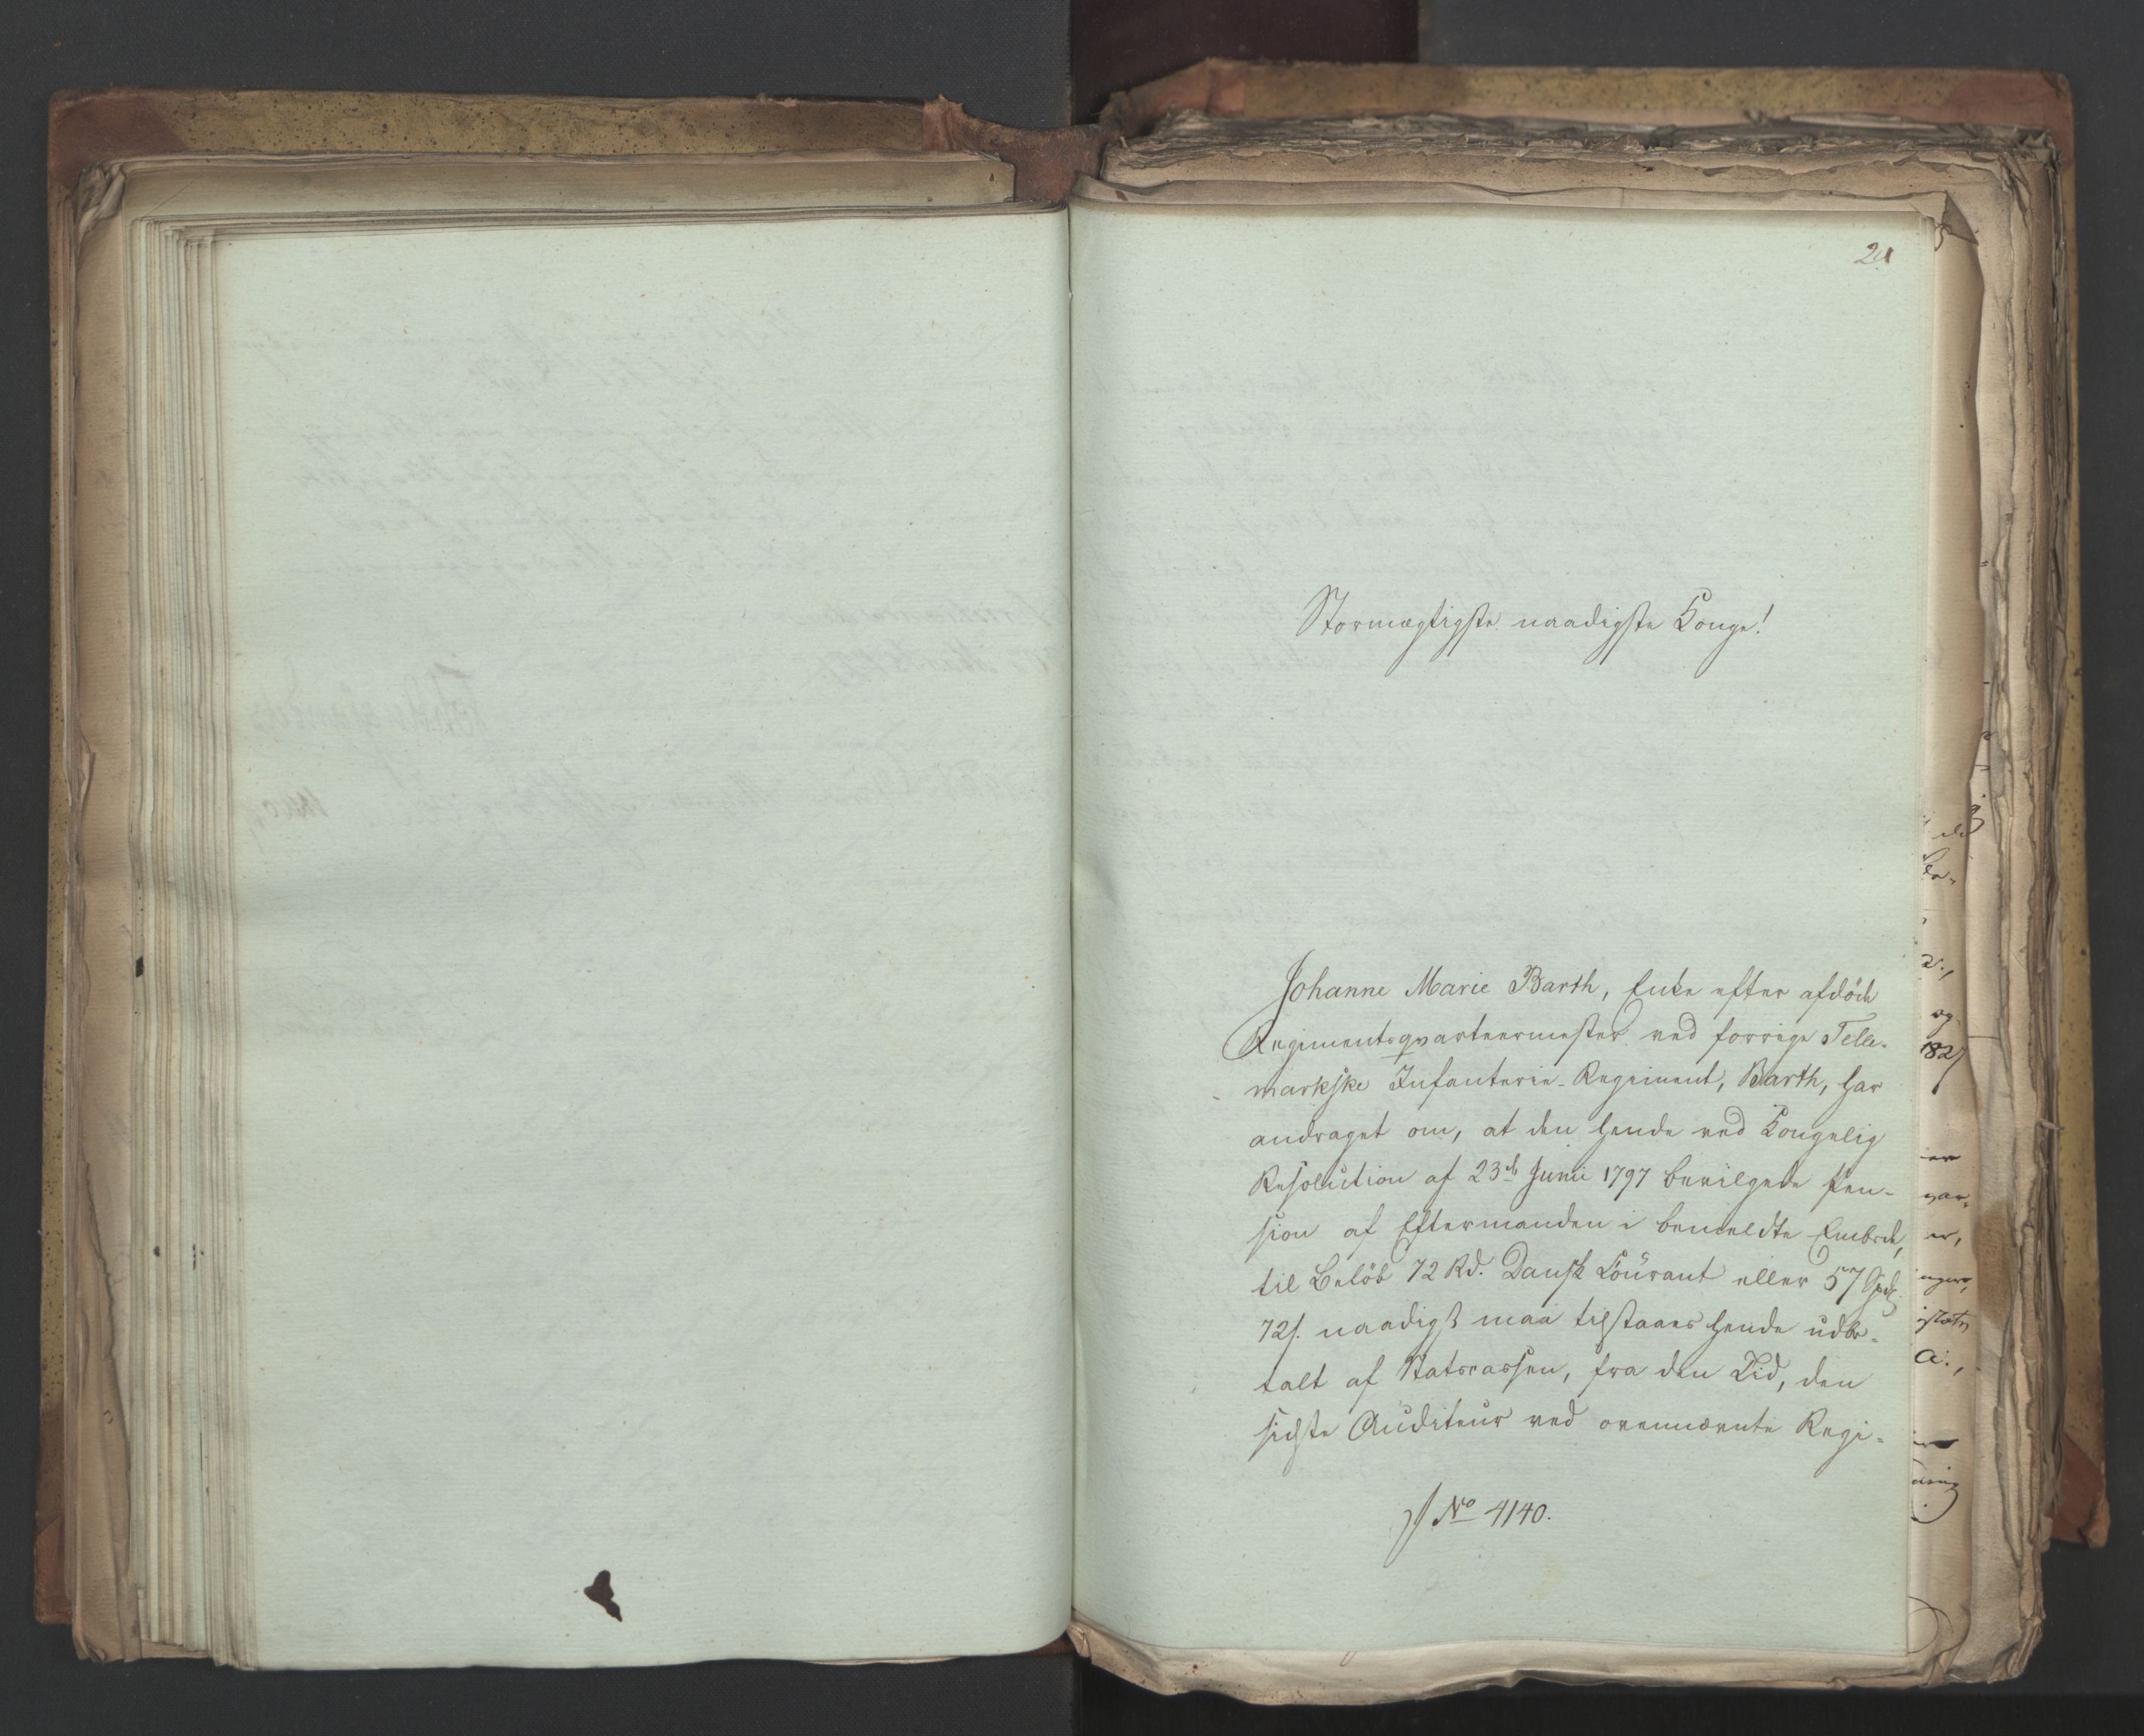 Stormægtigste naadigste Konge!
Johanne Marie Barth, Enke efter afdöde
Regimentsqvarteermester ved forrige Telle-
markske Infanterie-Regiment, Barth, har
andraget om, at den hende ved Kongelig
Resolution af 23de Junii 1797 bevilgede Pen-
sion af Eftermanden i bemeldte Embede,
til Belöb 72 Rd. Dansk Courant eller 57 Spd.
72 s. naadigst maa tilstaaes hende udbe-
talt af Statscassen, fra den Tid, den
sidste Auditeur ved ovennævnte Regi-
No 4140.
og
1827